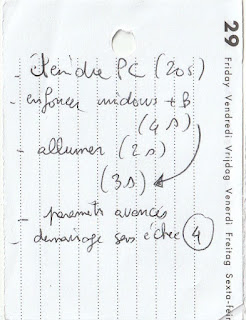 - éteindre PC (20s)
- enfoncer windows + B
(4s)
- allumer (2s)
(3s)
- paramets avancés
- démarrage sans échec 4
29
Friday Vendredi Vrijdag Venerdì Freitag Sexta-feir